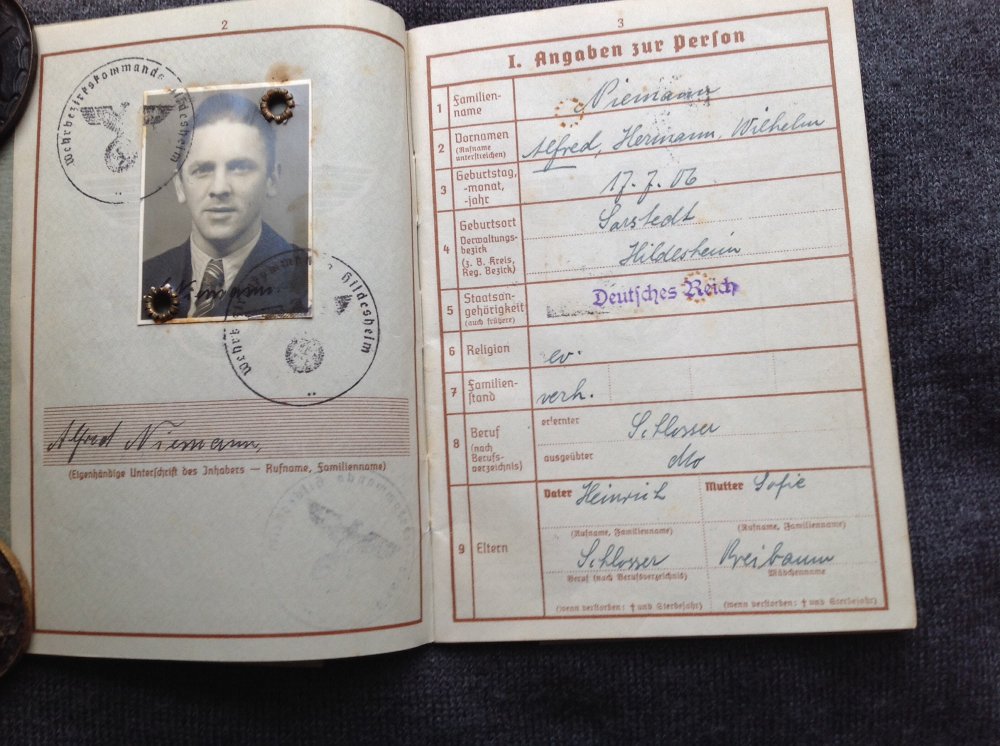 2
Wehrbezirkskommando Hildesheim
Niemann
Wehrbezirkskommando Hildesheim
Alfred Niemann,
(Eigenhändige Unterschrift des Inhabers — Rufname, Familienname)
3
I. Angaben zur Person
1 Familien-
name
Niemann
2 Vornamen
(Rufname
unterstreichen)
Alfred, Hermann, Wilhelm
3 Geburtstag,
-monat,
-jahr
17.7.06
4 Geburtsort
Verwaltungs-
bezirk
(z. B. Kreis,
Reg. Bezirk)
Sarstedt
Hildesheim
5 Staatsan-
gehörigkeit
(auch frühere)
Deutsches Reich
6 Religion
ev.
7 Familien-
stand
verh.
8 Beruf
(nach
Berufs-
verzeichnis)
erlernter
Schlosser
ausgeübter
dto
9 Eltern
Vater Heinrich
Mutter Sofie
(Rufname, Familienname)
(Rufname, Familienname)
Schlosser
Beruf (nach Berufsverzeichnis)
Mädchenname
(wenn verstorben: † und Sterbejahr)
(wenn verstorben: † und Sterbejahr)